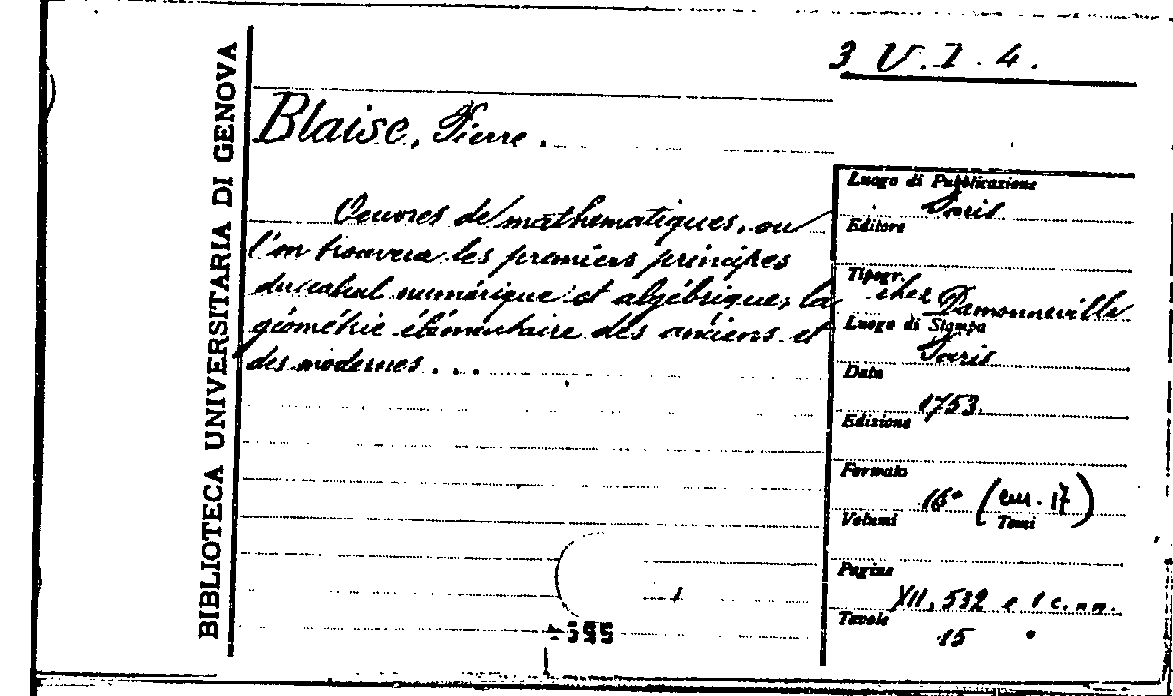 3 V.I.4.
BIBLIOTECA UNIVERSITARIA DI GENOVA
Blaise, Pierre.
Oeuvres de mathematiques, ou
l'on trouvera les premiers principes
du calcul numérique et algébrique, la
géométrie élémentaire des anciens et
des modernes...
Luogo di Pubblicazione
Paris
Editore
Tipogr.
chez Damonneville
Luogo di Stampa
Paris
Data
1753.
Edizione
Formato
16° (cm. 17)
Volumi Tomi
Pagine
XII, 532 e 1 c. nn.
Tavole
15